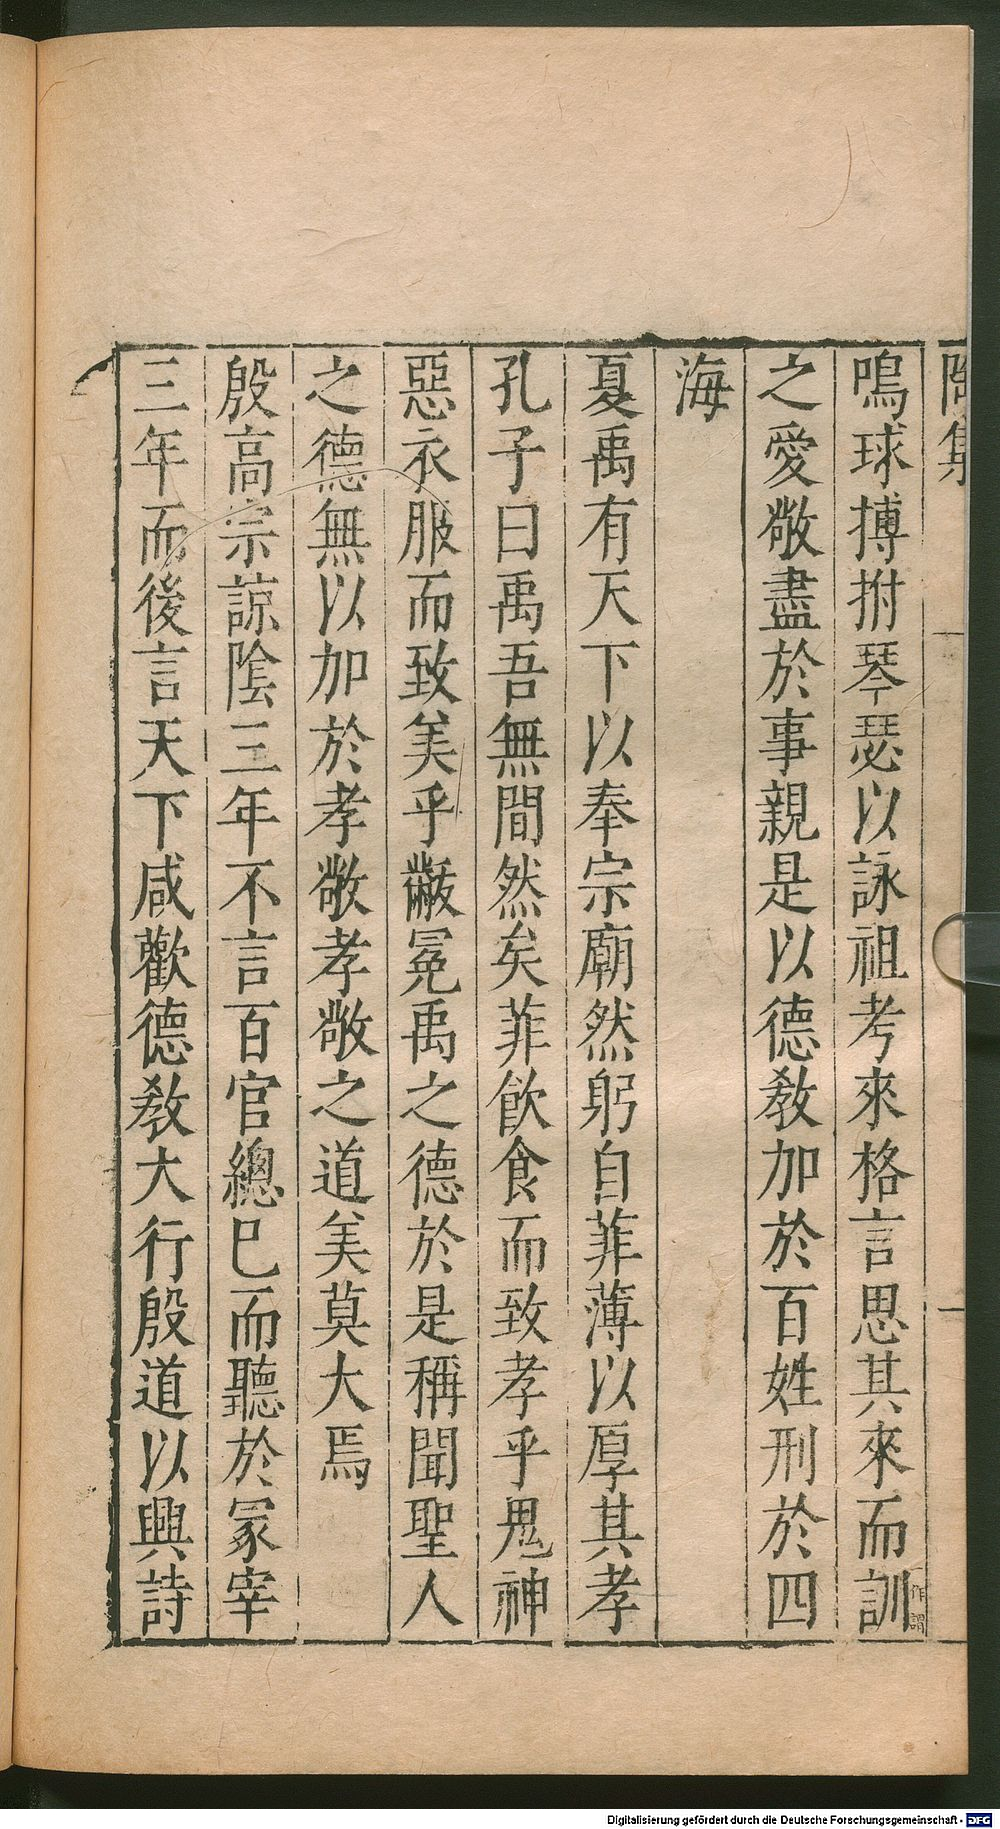 陶集
鳴球搏拊琴瑟以詠祖考來格言思其來而訓作謂
之愛敬盡於事親是以德敎加於百姓刑於四
海
夏禹有天下以奉宗廟然躬自菲薄以厚其孝
孔子曰禹吾無間然矣菲飮食而致孝乎鬼神
惡衣服而致美乎黻冕禹之德於是稱聞聖人
之德無以加於孝敬孝敬之道美莫大焉
殷高宗諒陰三年不言百官總巳而聽於冢宰
三年而後言天下咸歡德敎大行殷道以興詩
Digitalisierung gefördert durch die Deutsche Forschungsgemeinschaft - DFG